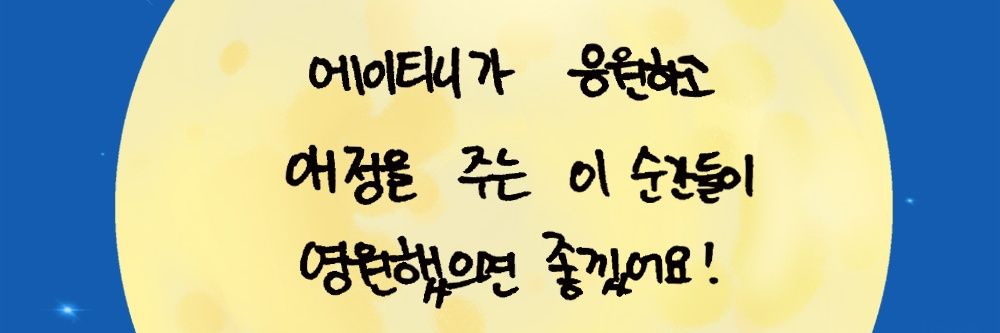 에이티니가 응원하고
애정을 주는 이 순간들이
영원했으면 좋겠어요!